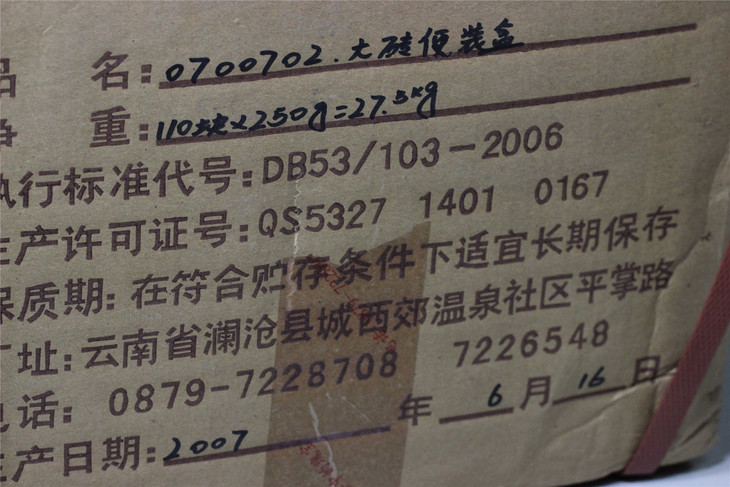 品名:0700702.大砖便装盒
净重:110块x250g=27.5kg
执行标准代号:DB53/103-2006
生产许可证号:QS5327 1401 0167
保质期:在符合贮存条件下适宜长期保存
厂址:云南省澜沧县城西郊温泉社区平掌路
电话:0879-7228708 7226548
生产日期:2007年6月16日